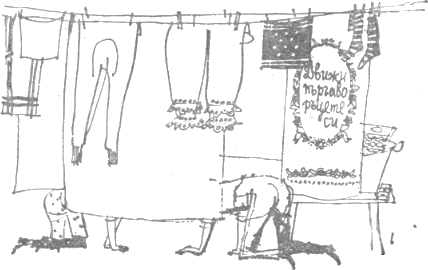 Движи
пъргаво
ръцете
си